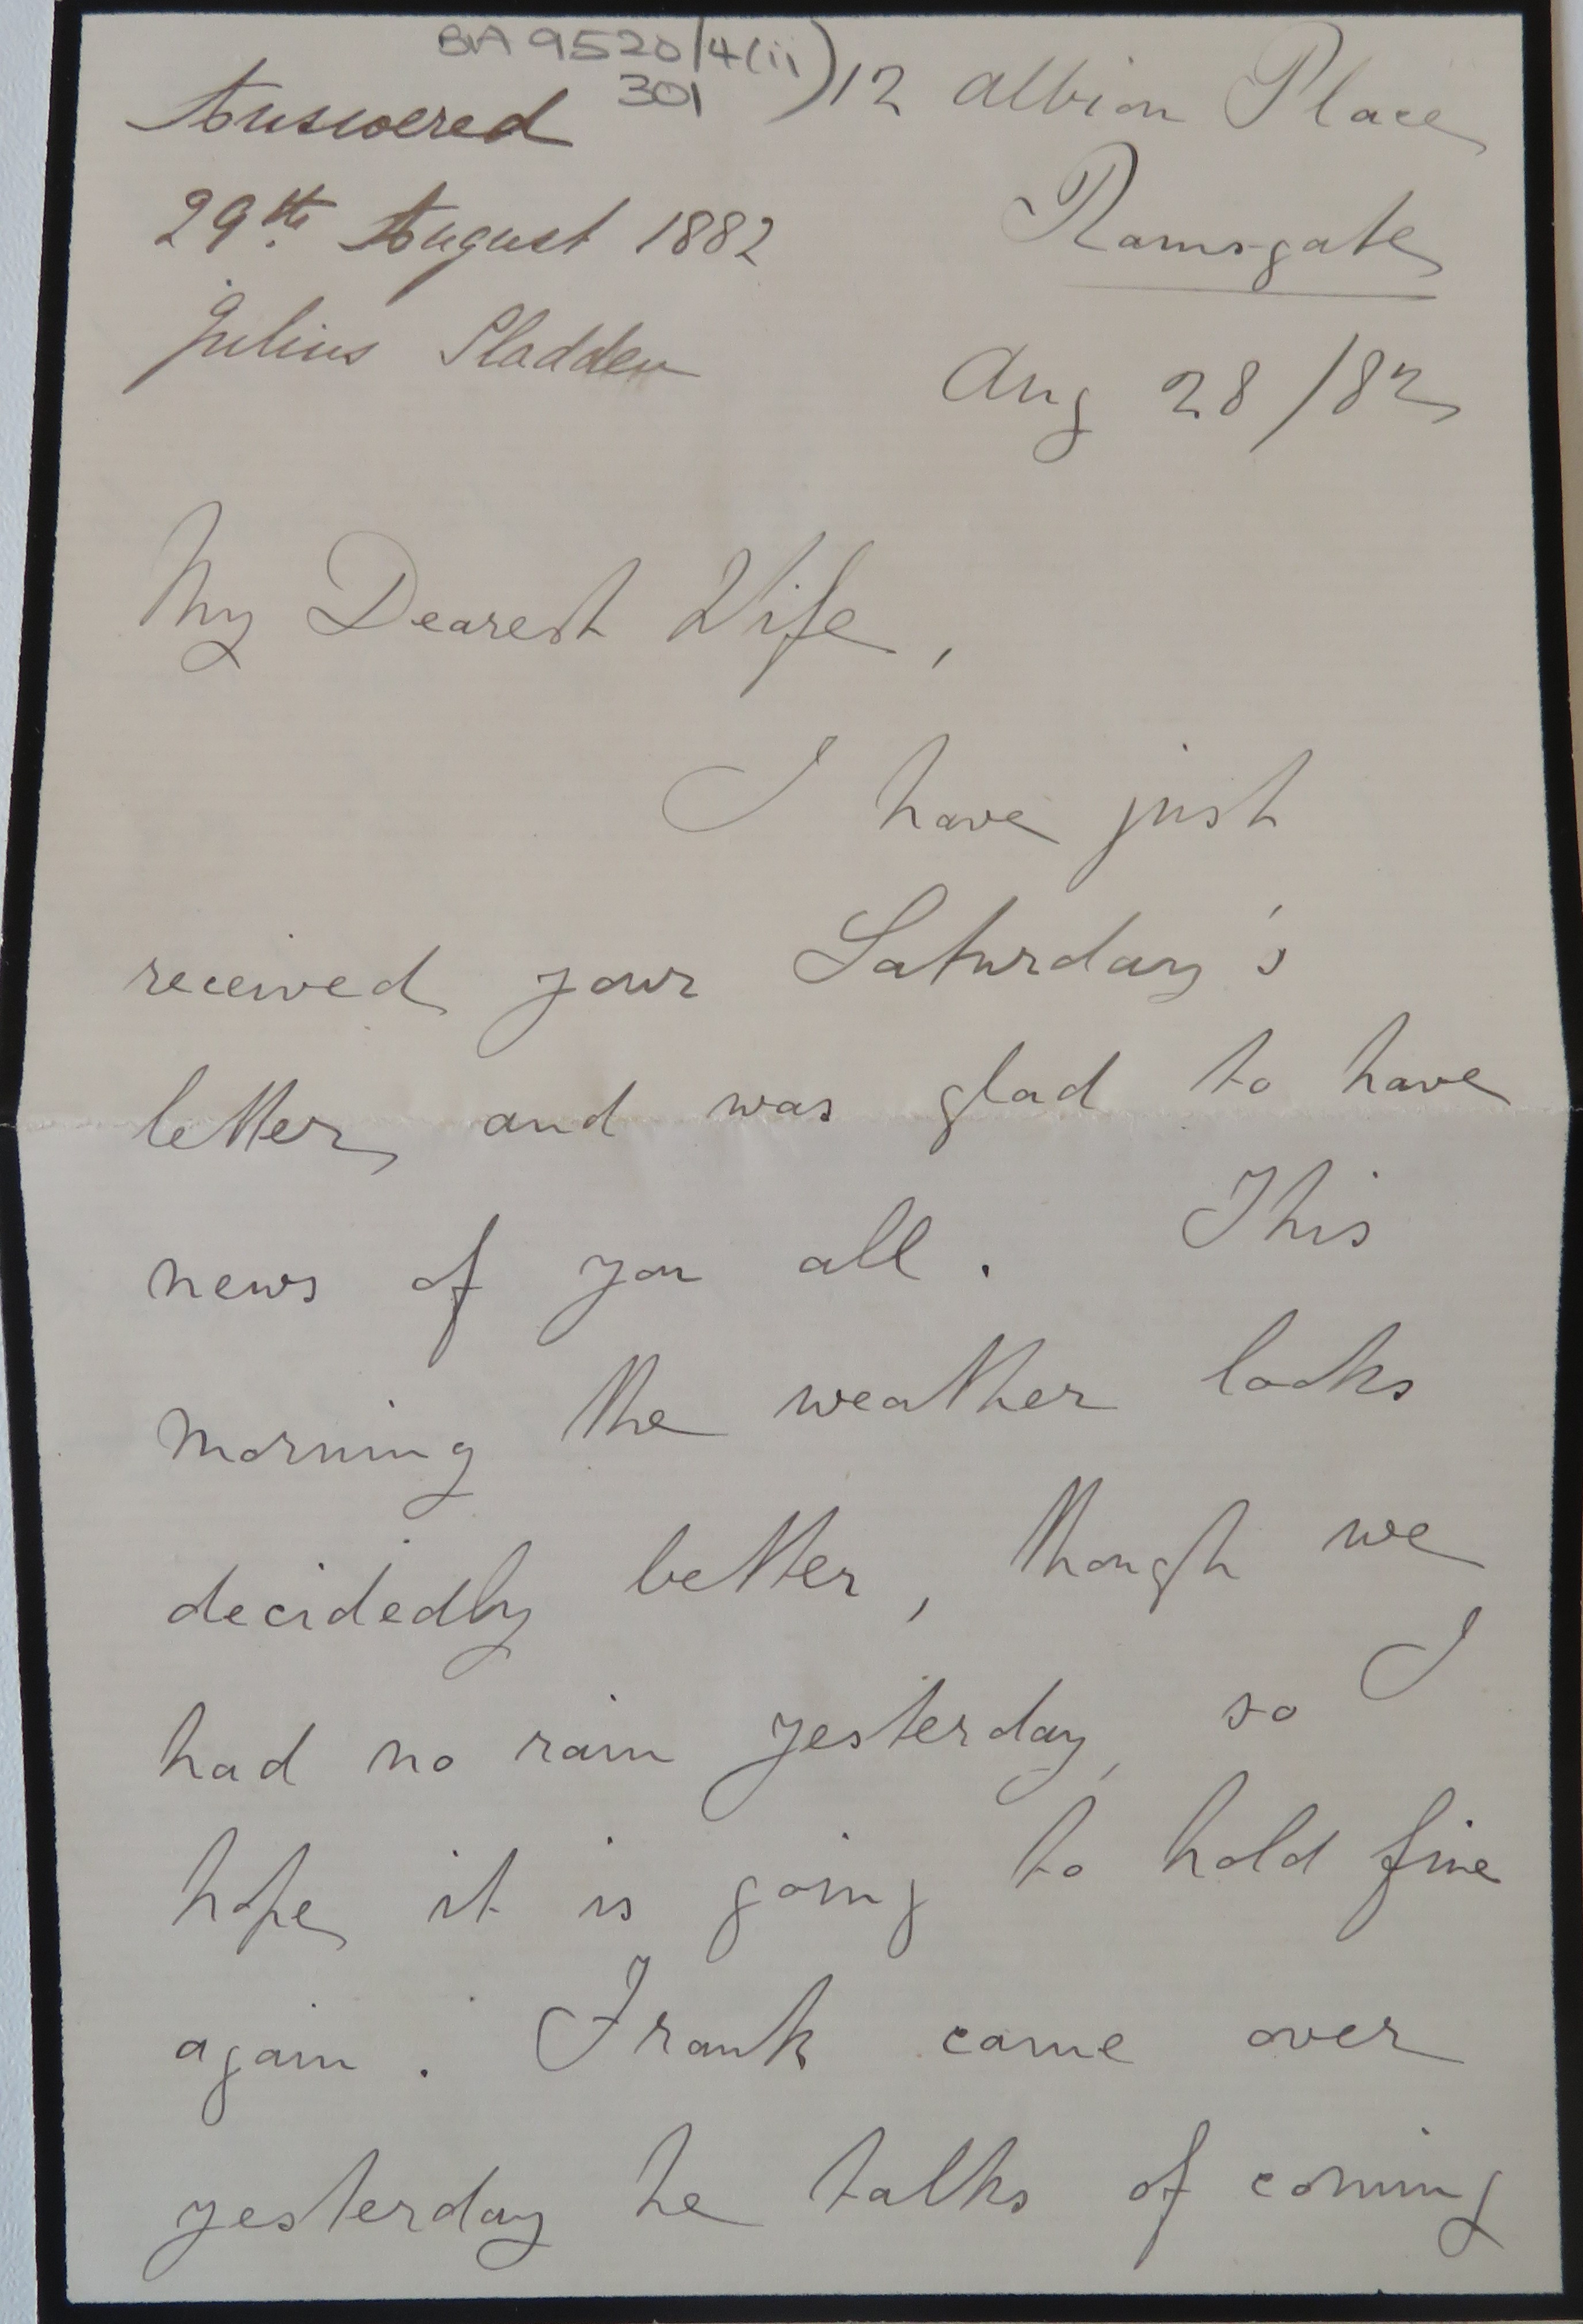 BA 9520/4(ii)
301
12 Albion Place
Ramsgate
Aug 28/82
Answered
29th August 1882
Julius Sladden
My Dearest Wife,
I have just
received your Saturday's
letter and was glad to have
news of you all. This
morning the weather looks
decidedly better, though we
had no rain yesterday, so I
hope it is going to hold fine
again. Frank came over
yesterday he talks of coming